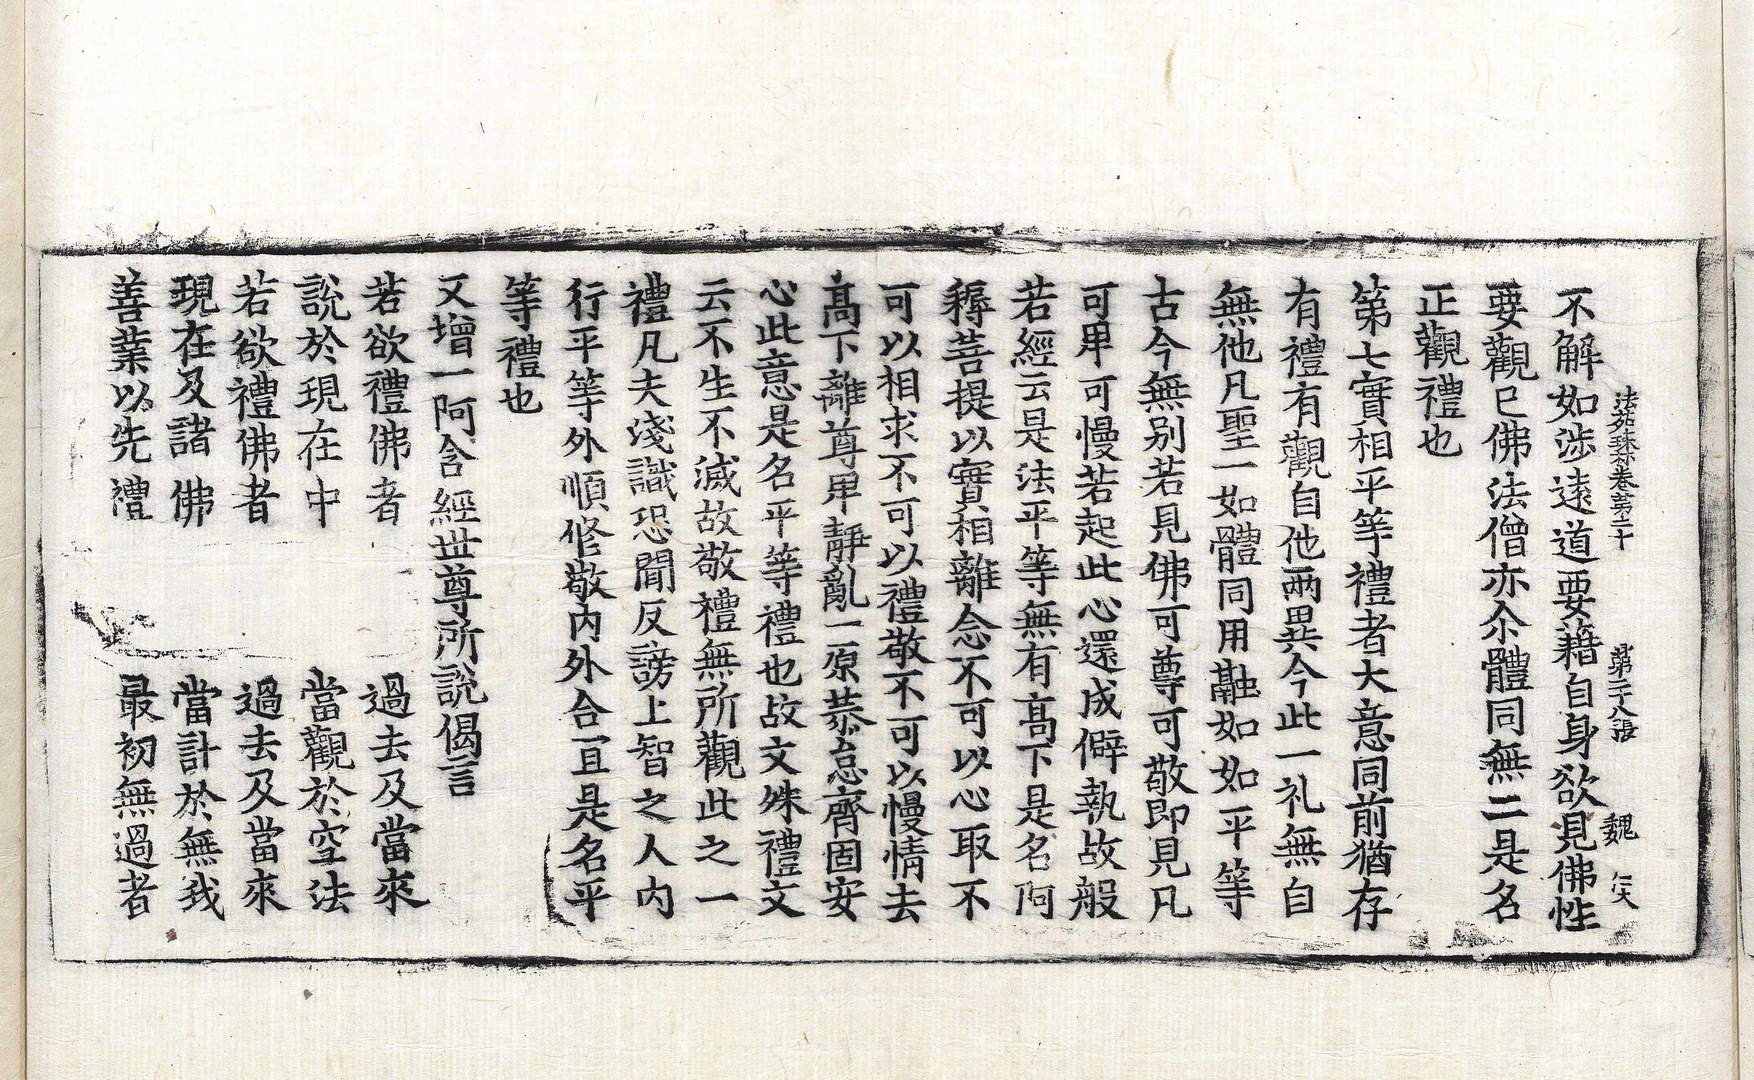 法苑珠林卷第二十 第二十八張 魏
不解如涉遠道要藉自身欲見佛性
要觀已佛法僧亦尒體同無二是名
正觀禮也
第七實相平等禮者大意同前猶存
有禮有觀自他兩異今此一礼無自
無他凡聖一如體同用融如如平等
古今無别若見佛可尊可敬即見凡
可卑可慢若起此心還成僻執故般
若經云是法平等無有髙下是名阿
耨菩提以實相離念不可以心取不
可以相求不可以禮敬不可以慢情去
髙下離尊卑靜亂一原恭怠齊固安
心此意是名平等禮也故文殊禮文
云不生不滅故敬禮無所觀此之一
禮凡夫淺識恐聞反謗上智之人内
行平等外順修敬内外合宜是名平
等禮也
又增一阿含經世尊所説偈言
若欲禮佛者 過去及當來
説於現在中 當觀於空法
若欲禮佛者 過去及當來
現在及諸佛 當計於無我
善業以先禮 最初無過者